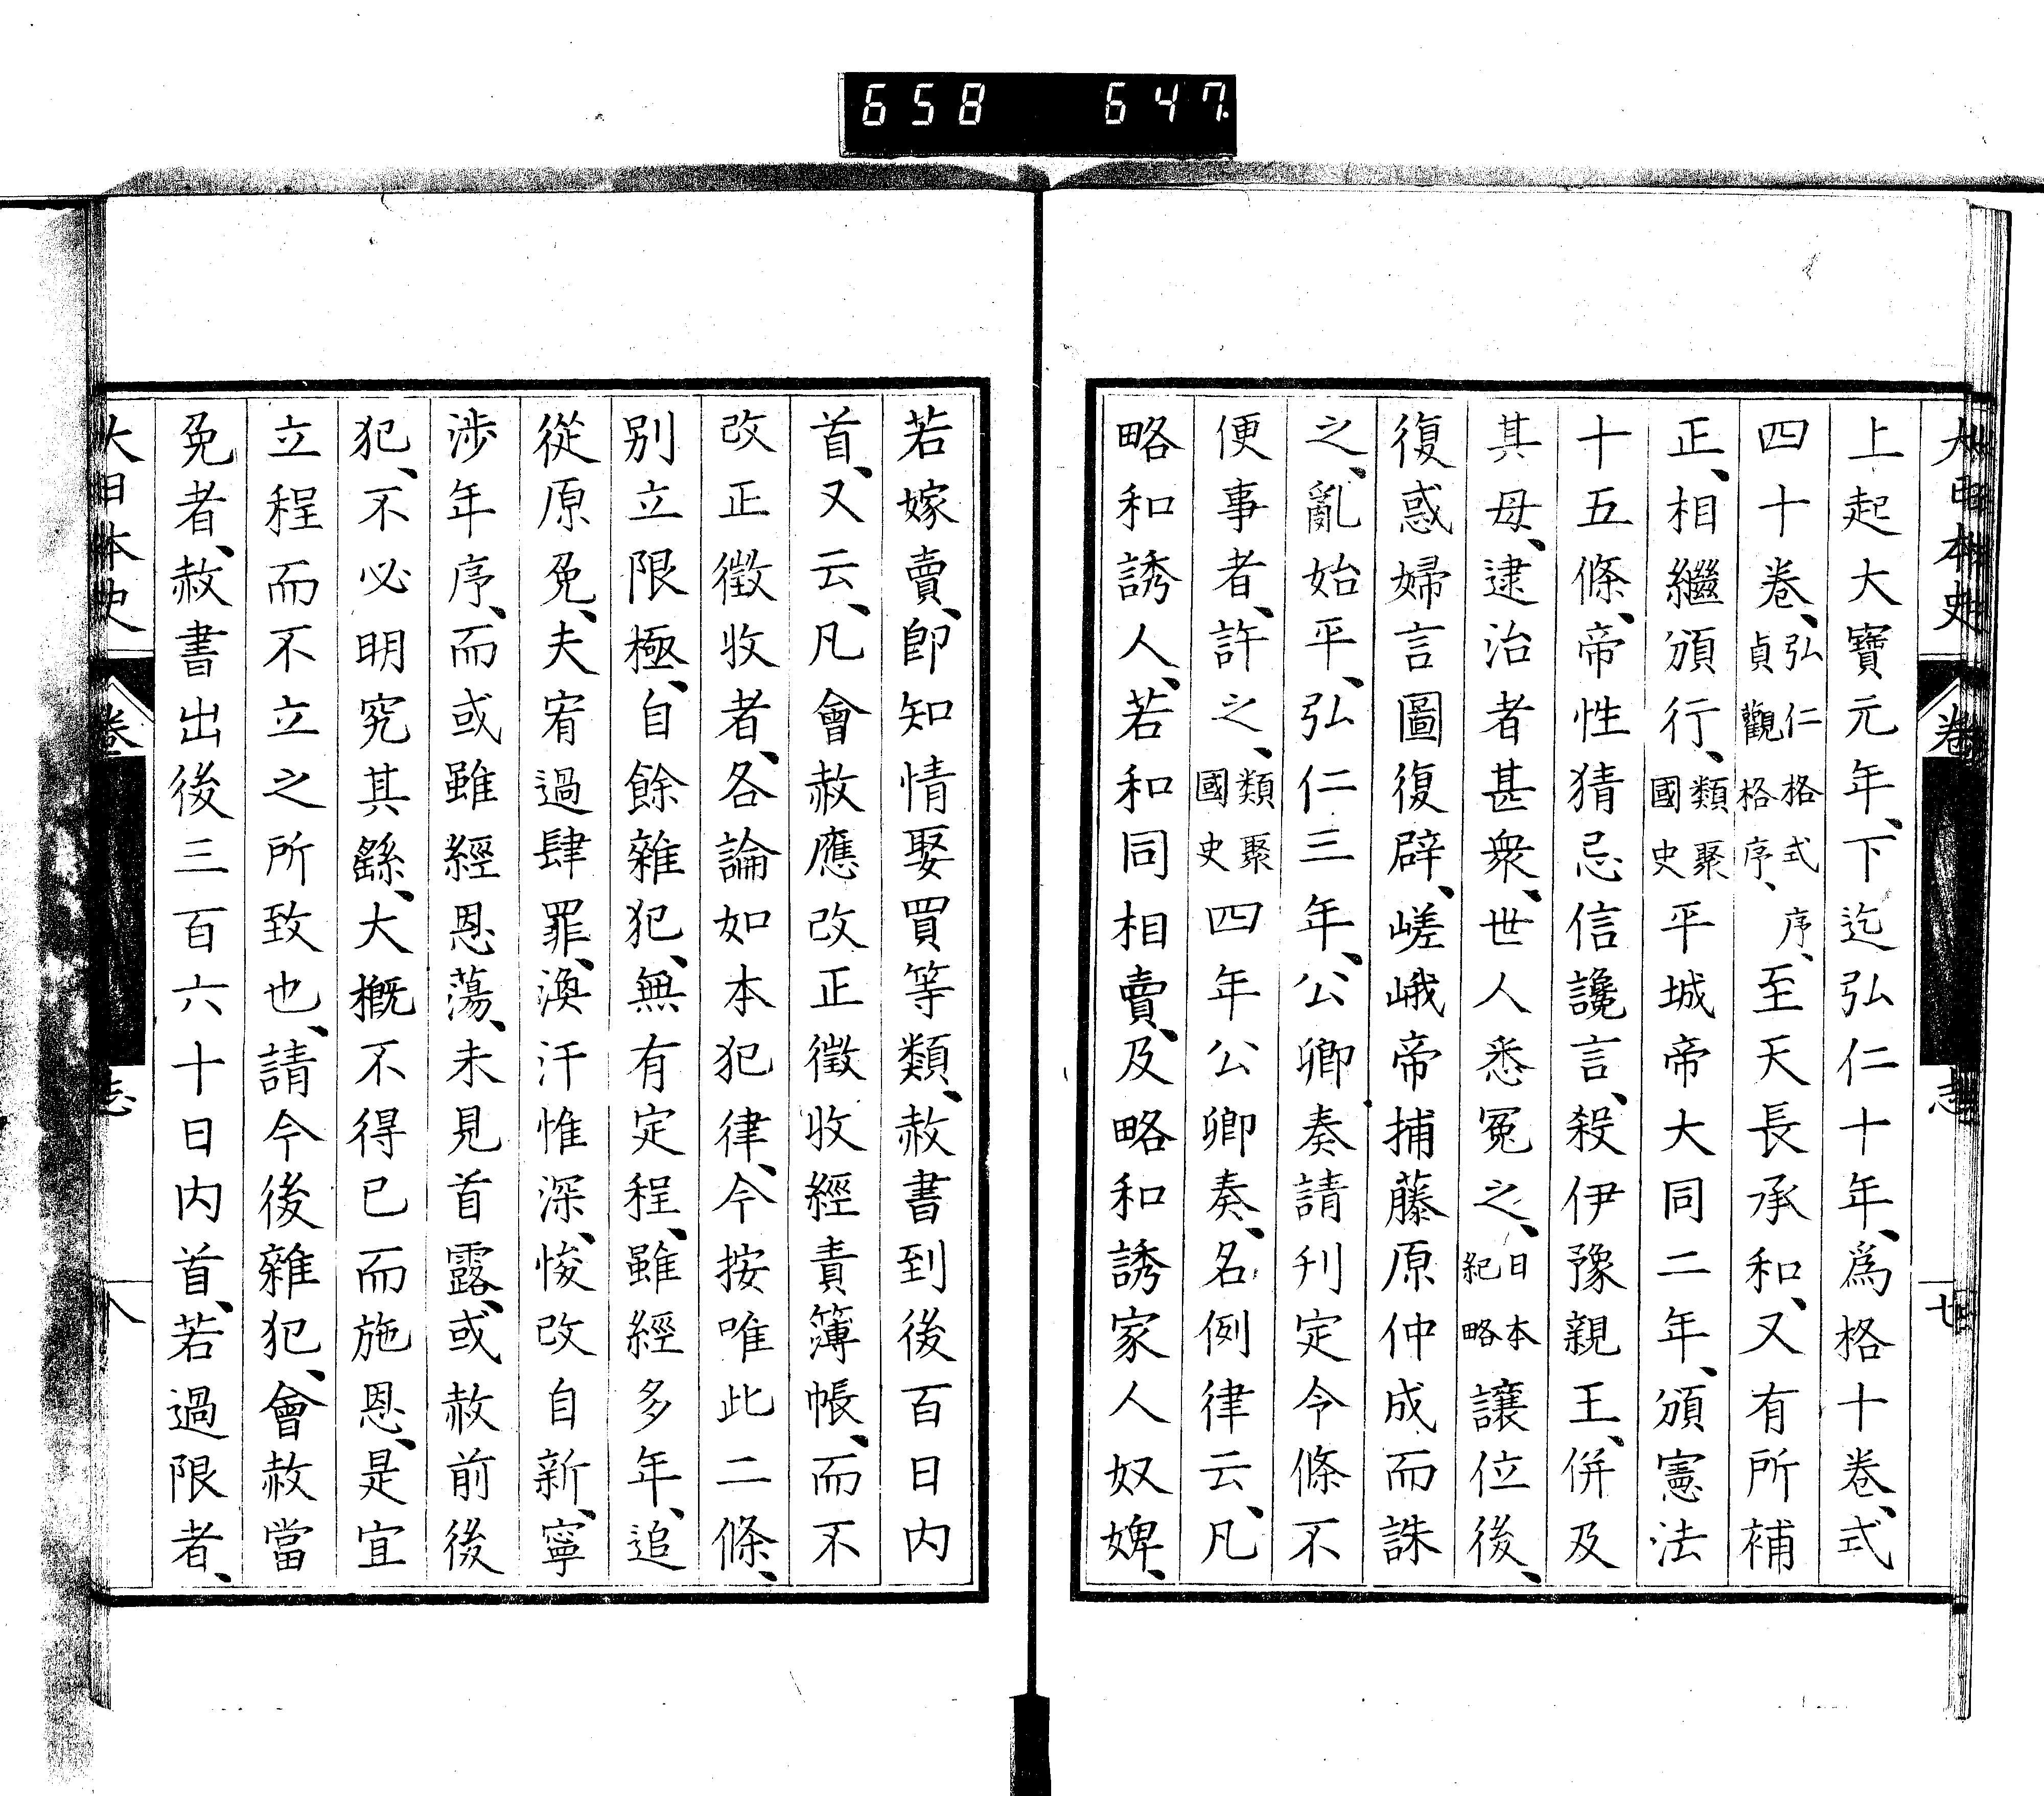 658 647
大日本史 卷 志 七
上起大寶元年、下迄弘仁十年、爲格十卷、式
四十卷、弘仁格式序、貞觀格序、至天長承和、又有所補
正、相繼頒行、類聚國史平城帝大同二年、頒憲法
十五條、帝性猜忌信讒言、殺伊豫親王、併及
其母、逮治者甚衆、世人悉冤之、日本紀略讓位後、
復惑婦言圖復辟、嵯峨帝捕藤原仲成而誅
之、亂始平、弘仁三年、公卿奏請刊定令條不
便事者、許之、類聚國史四年公卿奏、名例律云、凡
略和誘人、若和同相賣、及略和誘家人奴婢、
若嫁賣、卽知情娶買等類、赦書到後百日內
首、又云、凡會赦應改正徵收經責簿帳、而不
改正徵收者、各論如本犯律、今按唯此二條、
別立限極、自餘雜犯、無有定程、雖經多年、追
從原免、夫宥過肆罪、渙汗惟深、悛改自新、寧
涉年序、而或雖經恩蕩、未見首露、或赦前後
犯、不必明究其繇、大概不得已而施恩、是宜
立程而不立之所致也、請今後雜犯、會赦當
免者、赦書出後三百六十日內首、若過限者、
大日本史 卷 志 八